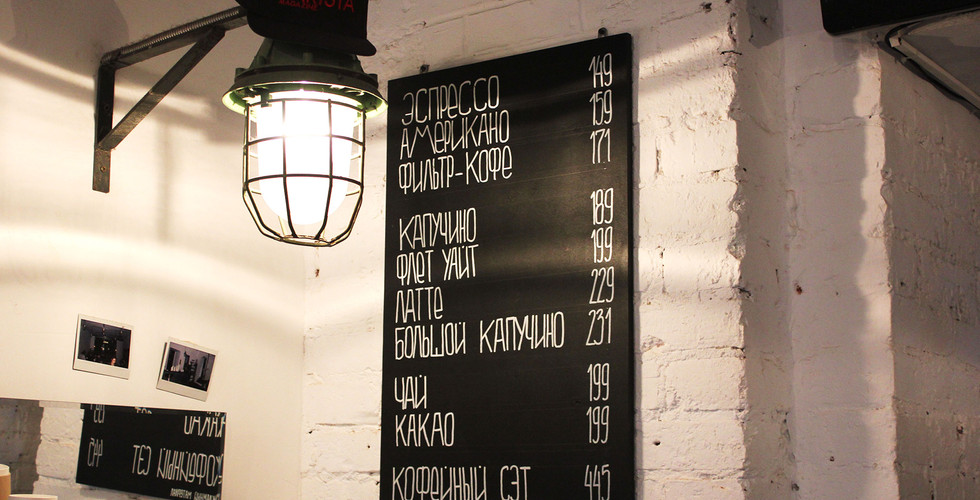 ЭСПРЕССО 149
АМЕРИКАНО 159
ФИЛЬТР-КОФЕ 171
КАПУЧИНО 189
ФЛЕТ УАЙТ 199
ЛАТТЕ 229
БОЛЬШОЙ КАПУЧИНО 231
ЧАЙ 199
КАКАО 199
КОФЕЙНЫЙ СЭТ 445